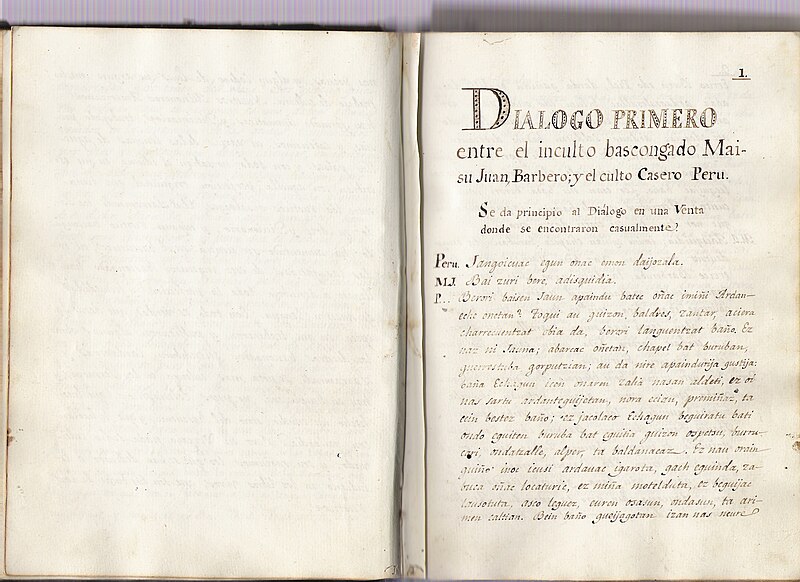 1.
DIALOGO PRIMERO
entre el inculto bascongado Mai-
su Juan, Barbero; y el culto Casero Peru.
Se da principio al Diálogo en una Venta
donde se encontraron casualmente?
Peru. Jangoicuac egun onac emon daijozala.
M.J. Bai zuri bere, adisquidia.
P. Berori baisen Jaun apaindu batec oñac imiñi Ardan-
eche onetan? Toqui au guizon, baldres, zantar, aciera
charrecuentzat obia da, berori languentzat baño. Ez
naz ni Jauna; abarcac oñetan, chapel bat buruban,
gorputzian; au da nire apaindurija gustija:
baña Echagun icen onaren zalia nasan aldeti, ez oi
nas sartu ardanteguijetan, nora ecian, premiñaz, ta
ecin bestez baño; ez jacolaco Echagun beguiratu bati
ondo eguiten buruba bat eguitia guizon ospetsu, burru-
cari, ondatzalle, alper, ta baldanacaz. Ez nau orain
guiño inoc icusi ardauac igarota, gach eguinda, za-
oñac locaturic, ez miña motelduta, ez beguijac
lausotuta, asco leguez, euren osasun, ondasun, ta ari-
men caltian. Bein baño gueijagotan izan nas neure